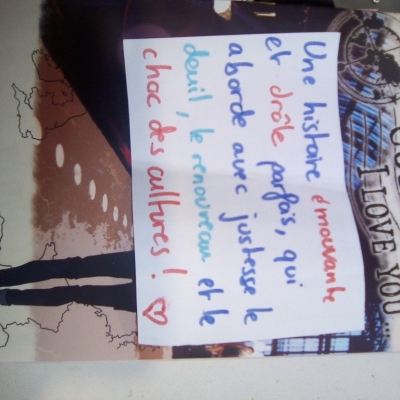 I LOVE YOU...
Une histoire émouvante
et drôle parfois, qui
aborde avec justesse le
deuil, le renouveau et le
choc des cultures ! ♡